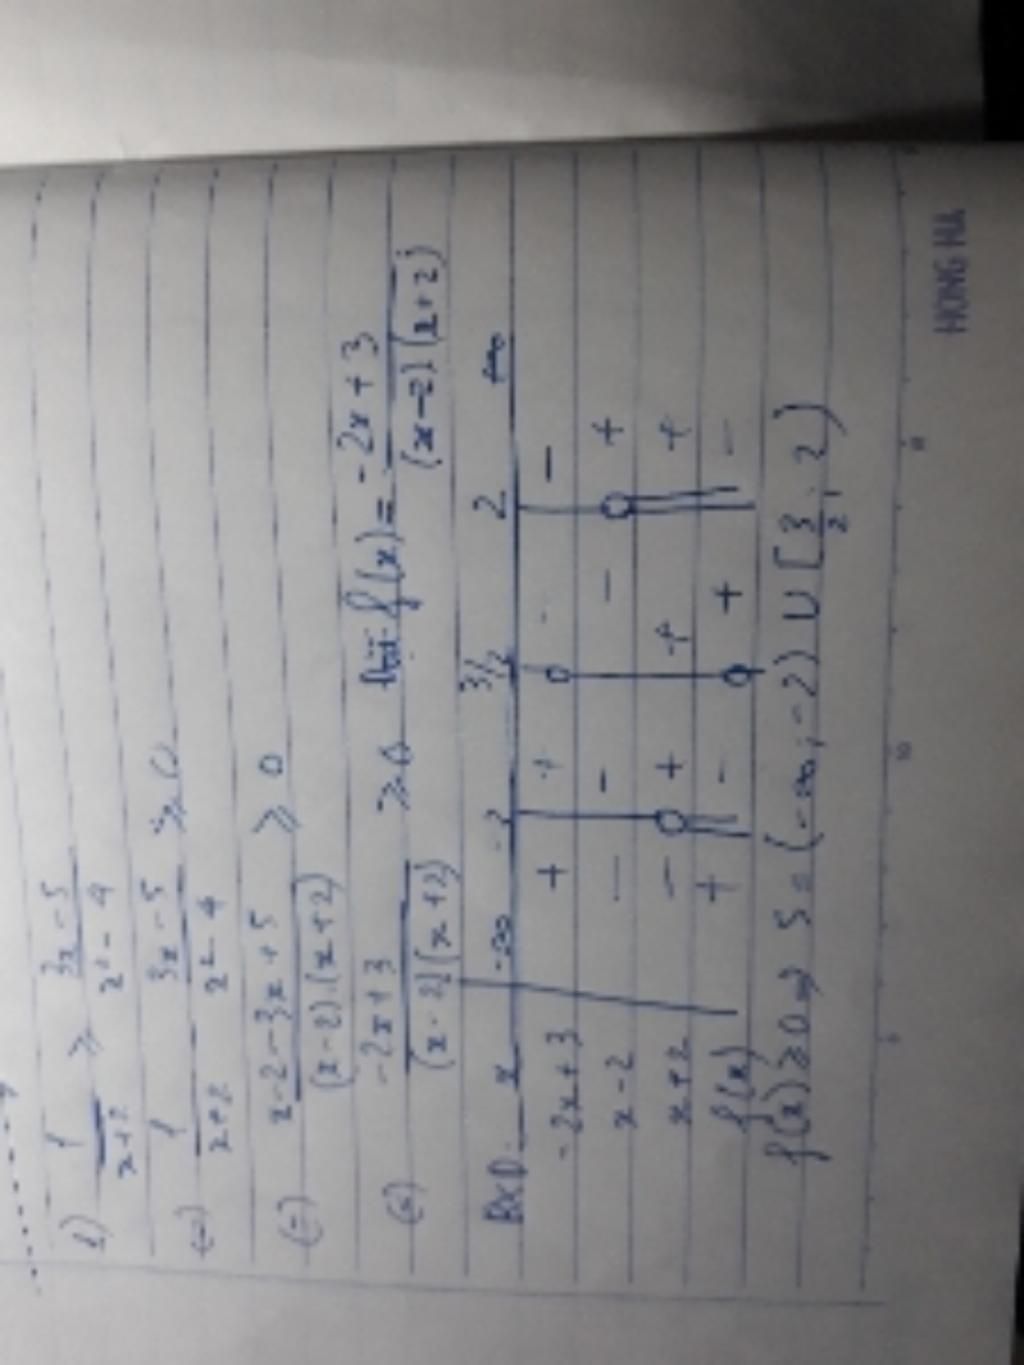 1) 1/(x+2) ≥ (3x-5)/(x²-4)
(=) 1/(x+2) - (3x-5)/(x²-4) ≥ 0
(=) (x-2-3x+5)/((x-2).(x+2)) ≥ 0
(=) (-2x+3)/((x-2)(x+2)) ≥ 0 Đặt f(x) = (-2x+3)/((x-2)(x+2))
BXD: x -∞ -2 3/2 2 +∞
-2x+3 + + 0 - -
x-2 - - - 0 +
x+2 - 0 + + +
f(x) + || - 0 + || -
f(x) ≥ 0 => S = (-∞; -2) U [3/2; 2)
HONG HA